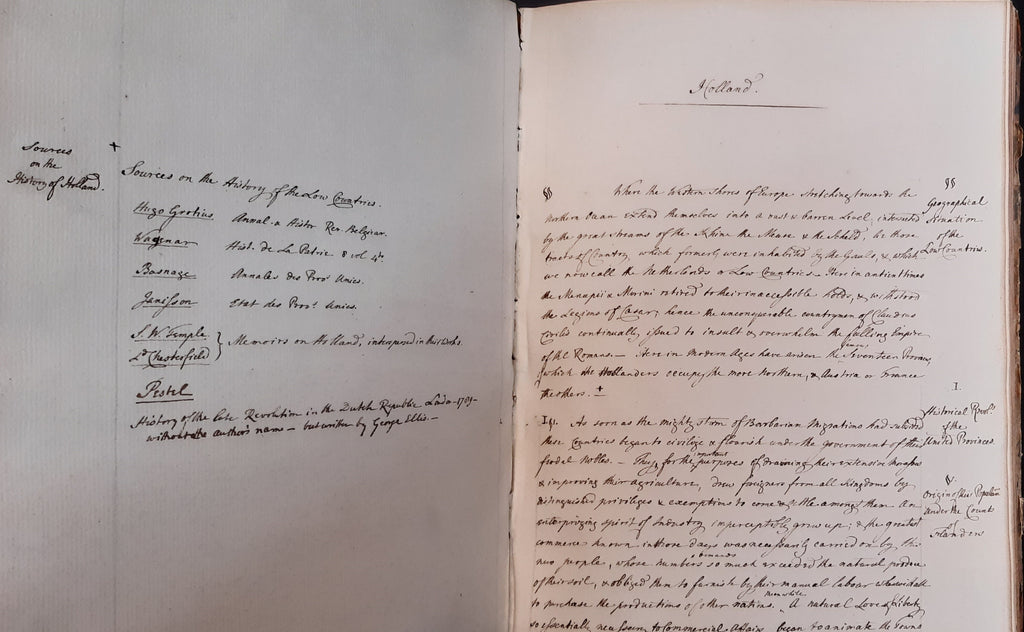 Sources
on the
History of Holland.
+
Sources on the History of the Low Countries.
Hugo Grotius. Annal. & Histor. Rer. Belgicar.
Wagenar Hist. de La Patrie 8 vol 4to.
Basnage Annales des Prov. Unies.
Janisson Etat des Prov. Unies.
S. W. Temple
Ld. Chesterfield } Memoirs on Holland, interspersed in their Works.
Pestel
History of the late Revolution in the Dutch Republic Lond. 1789 -
without the author's name - but written by George Ellis. -
Holland.
§§ Where the Western Shores of Europe stretching towards the
Northern Ocean extend themselves into a vast & barren Level, intersected
by the great streams of the Rhine the Maase & the Scheld, lie those
tracts of Country, which formerly were inhabited by the Gauls, & which
we now call the Netherlands or Low Countries. Here in antient times
the Menapii & Morini retired to their inaccessible holds, & withstood
the Legions of Caesar; hence the unconquerable countrymen of Claudius
Civilis continually issued to insult & overwhelm the falling Empire
of the Romans. - Here in Modern Ages have arisen the Seventeen Provinces
of which the Hollanders occupy the more Northern, & Austria or France
the others. +
§§
Geographical
Situation
of the
Low Countries.
I §1. As soon as the mighty storm of Barbarian Migrations had subsided
these Countries began to civilize & flourish under the government of their
feudal Nobles. - They, for the important purposes of draining their extensive Marshes
& improving their agriculture, drew foreigners from all Kingdoms by
distinguished privileges & exemptions to come & settle among them. An
enterprizing spirit of Industry imperceptibly grew up; & the greatest
commerce known in those days was necessarily carried on by this
new people, whose numbers & demands so much exceeded the natural produce
of their soil, & obliged them to furnish by their manual labour wherewithall
to purchase the productions of other nations. Meanwhile A natural Love of Liberty
so essentially necessary to Commercial Affairs began to animate the Towns
I.
Historical Revol.s
of the
United Provinces
§.
Origin of their Population
under the Count
of
Flanders